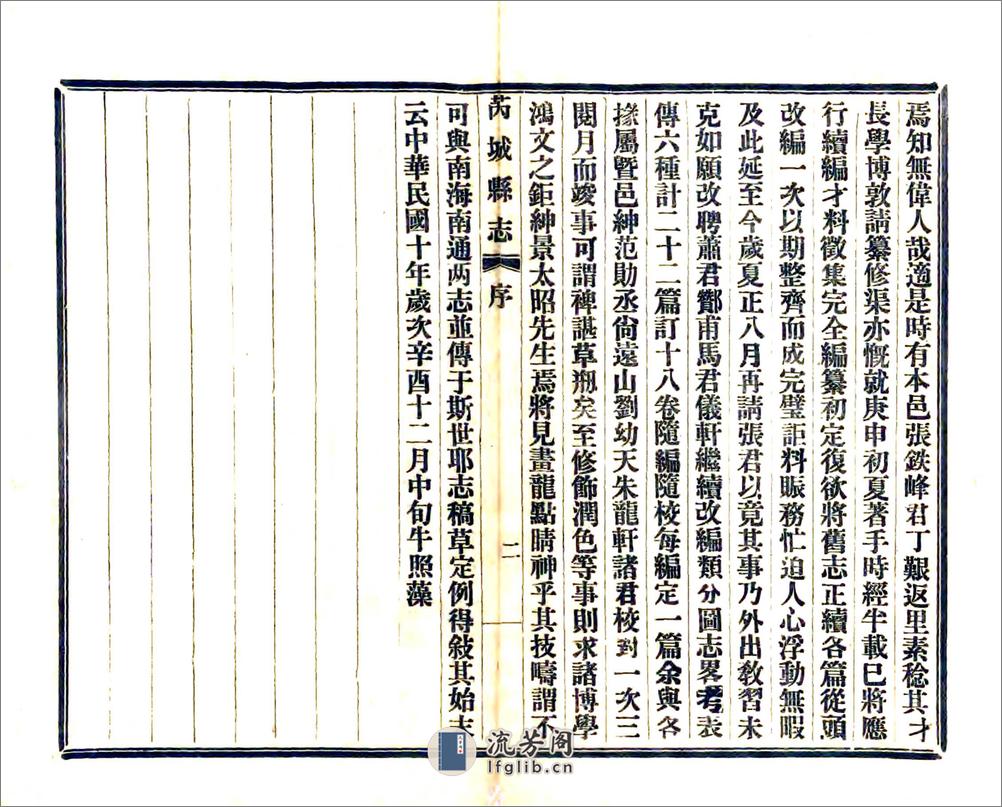 焉知無偉人哉適是時有本邑張鉄峰君丁艱返里素稔其才
長學博敦請纂修渠亦慨就庚申初夏著手時經半載已將應
行續編才料徵集完全編纂初定復欲將舊志正續各篇從頭
改編一次以期整齊而成完璧詎料賑務忙迫人心浮動無暇
及此延至今歲夏正八月再請張君以竟其事乃外出教習未
克如願改聘蕭君酇甫馬君儀軒繼續改編類分圖志畧考表
傳六種計二十二篇訂十八卷隨編隨校每編定一篇余與各
掾屬暨邑紳范勛丞尙遠山劉幼天朱龍軒諸君校對一次三
閱月而竣事可謂裨諶草刱矣至修飾潤色等事則求諸博學
鴻文之鉅紳景太昭先生焉將見畫龍點睛神乎其技疇謂不
芮城縣志 序 二
可與南海南通两志並傳于斯世耶志稿草定例得敍其始末
云中華民國十年歲次辛酉十二月中旬牛照藻
流芳阁
lfglib.cn